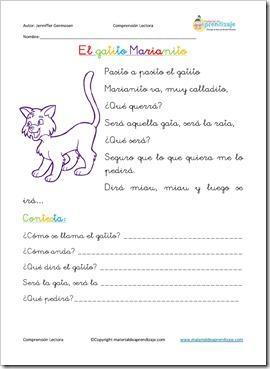 Autor: Jenniffer Germosen Comprensión Lectora
aprendizaje
Nombre:
El gatito Marianito
Pasito a pasito el gatito
Marianito va, muy calladito,
¿Qué querrá?
Será aquella gata, será la rata,
¿Qué será?
Seguro que lo que quiera me lo
pedirá.
Dirá miau, miau y luego se
irá...
Contesta:
¿Cómo se llama el gatito?
¿Cómo anda?
¿Qué dirá el gatito?
Será la gata, será la
¿Qué pedirá?
Comprensión Lectora ©Copyright materialdeaprendizaje.com www.materialdeaprendizaje.com